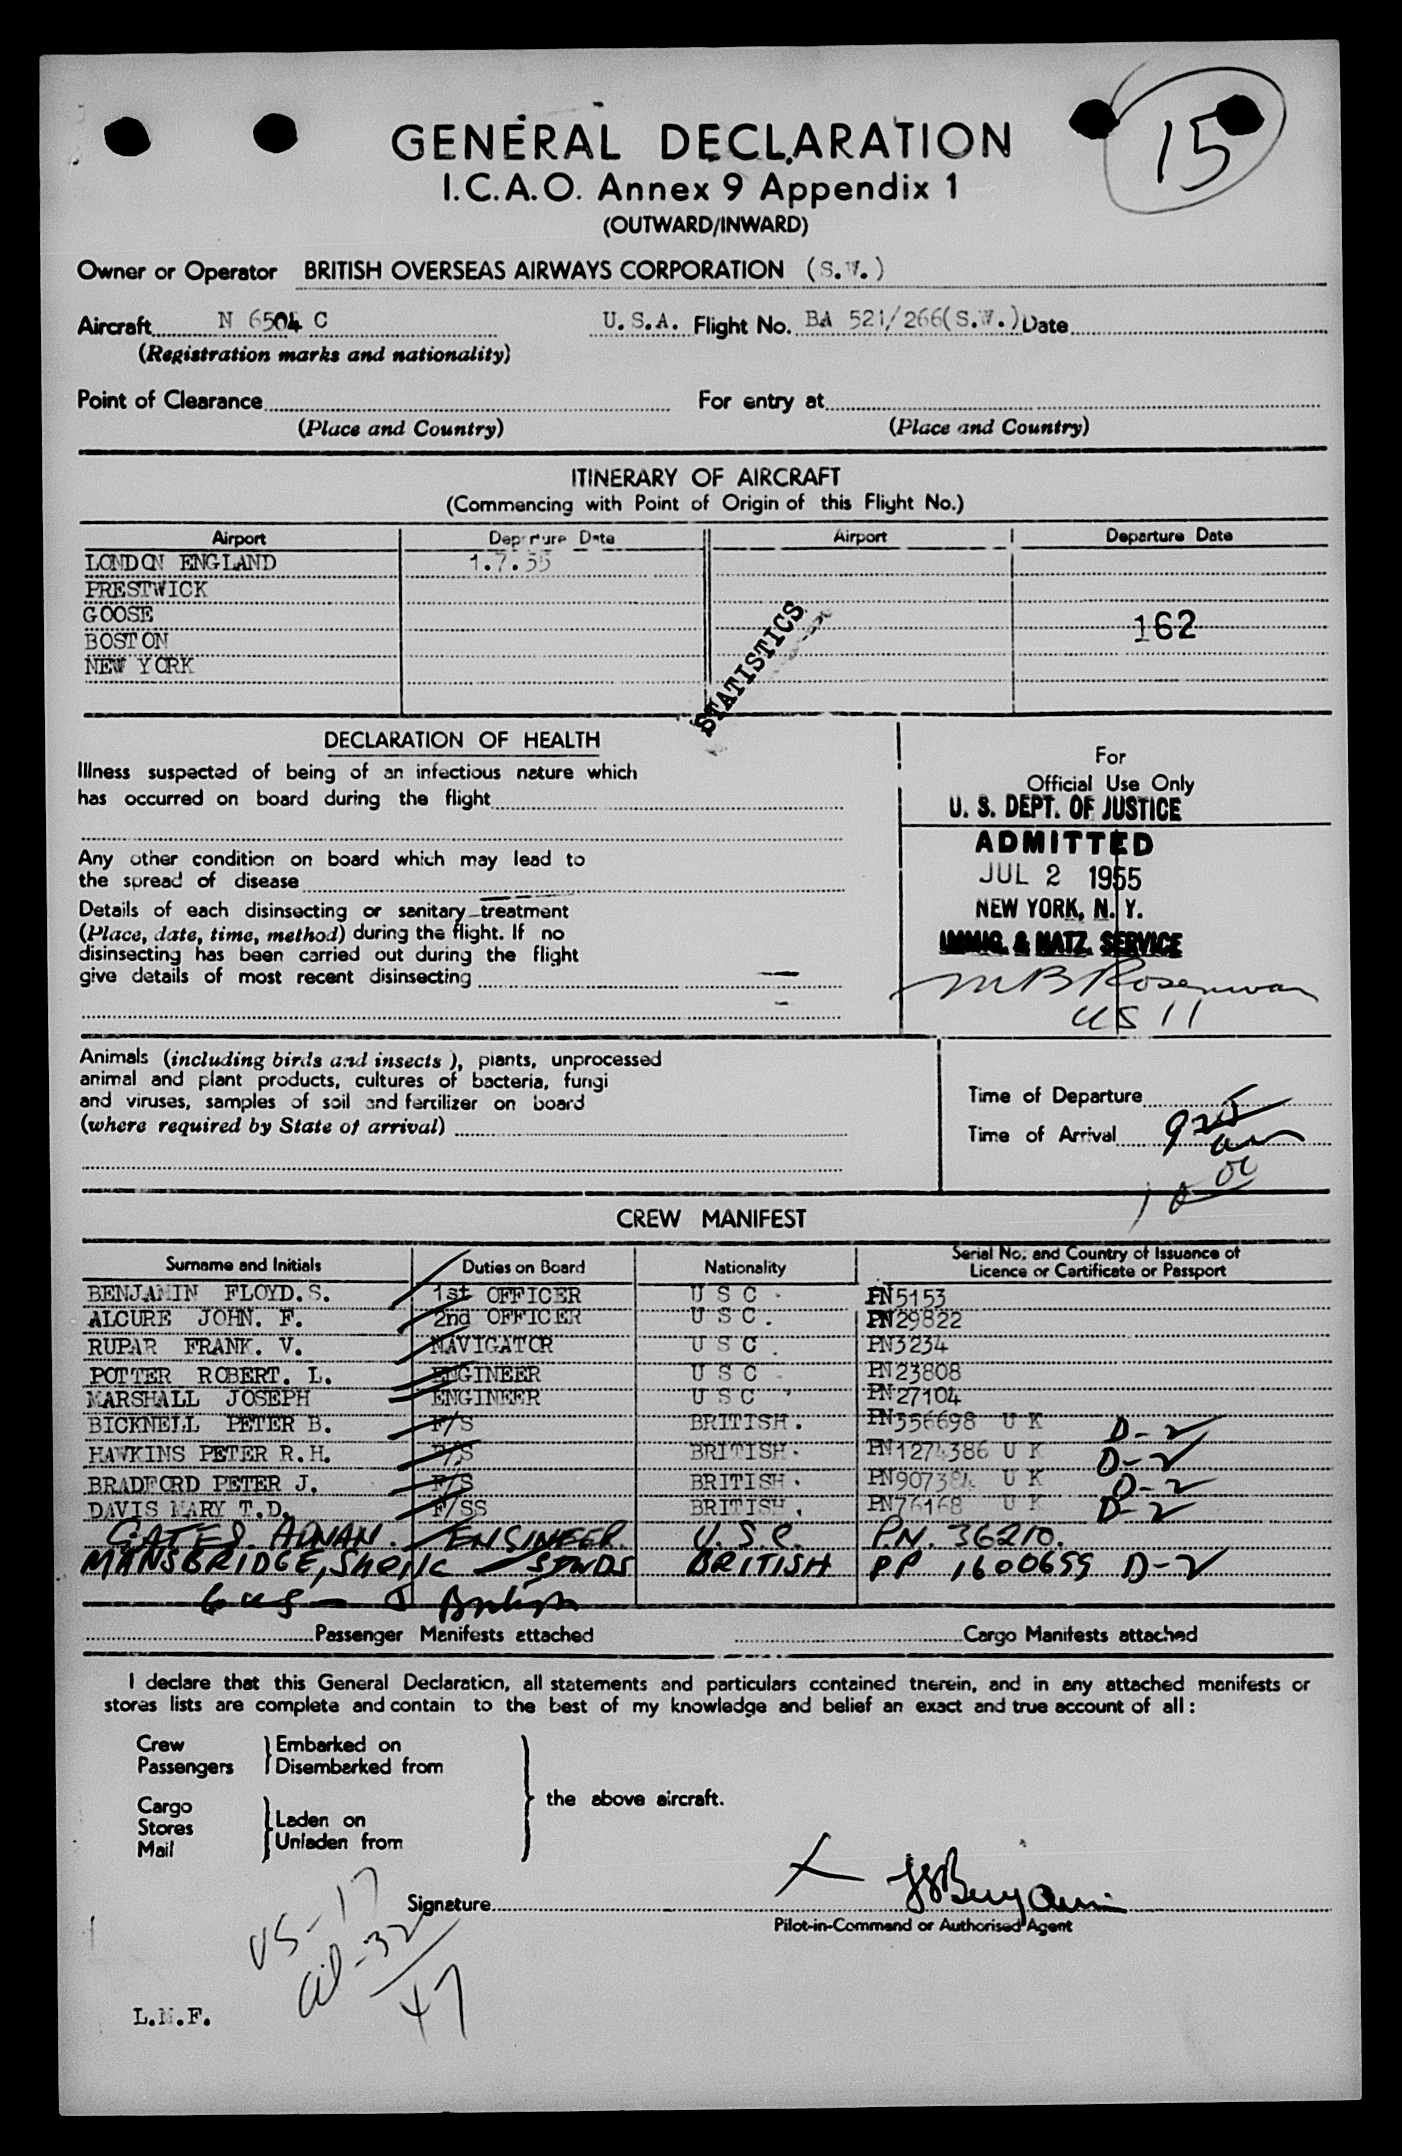 15
GENERAL DECLARATION
I.C.A.O. Annex 9 Appendix 1
(OUTWARD/INWARD)
Owner or Operator BRITISH OVERSEAS AIRWAYS CORPORATION (S.W.)
Aircraft N 6504 C U.S.A. Flight No. BA 521/266(S.W.) Date
(Registration marks and nationality)
Point of Clearance For entry at
(Place and Country) (Place and Country)
ITINERARY OF AIRCRAFT
(Commencing with Point of Origin of this Flight No.)
Airport Departure Date Airport Departure Date
LONDON ENGLAND 1.7.55
PRESTWICK
GOOSE
BOSTON 162
NEW YORK
STATISTICS
DECLARATION OF HEALTH
Illness suspected of being of an infectious nature which
has occurred on board during the flight
Any other condition on board which may lead to
the spread of disease
Details of each disinsecting or sanitary treatment
(Place, date, time, method) during the flight. If no
disinsecting has been carried out during the flight
give details of most recent disinsecting
For
Official Use Only
U. S. DEPT. OF JUSTICE
ADMITTED
JUL 2 1955
NEW YORK, N. Y.
IMMIG. & NATZ. SERVICE
US 11
Animals (including birds and insects), plants, unprocessed
animal and plant products, cultures of bacteria, fungi
and viruses, samples of soil and fertilizer on board
(where required by State of arrival)
Time of Departure
Time of Arrival 925
am
CREW MANIFEST
Surname and Initials Duties on Board Nationality Serial No. and Country of Issuance of
Licence or Certificate or Passport
BENJAMIN FLOYD.S. 1st OFFICER U S C PN5153
ALCURE JOHN. F. 2nd OFFICER U S C. PN29822
RUPAR FRANK. V. NAVIGATOR U S C. PN3234
POTTER ROBERT. L. ENGINEER U S C PN23808
MARSHALL JOSEPH ENGINEER U S C PN27104
BICKNELL PETER B. F/S BRITISH. PN356698 U K D-2
HAWKINS PETER R.H. F/S BRITISH. U K D-2
BRADFORD PETER J. F/S BRITISH. U K D-2
DAVIS MARY T.D. F/SS BRITISH. PN76168 U K D-2
GATES. ENGINEER U.S.C. P.N. 36210.
MANSBRIDGE, STWDS BRITISH PP 1600699 D-2
6 US — 5 British
Passenger Manifests attached Cargo Manifests attached
I declare that this General Declaration, all statements and particulars contained therein, and in any attached manifests or
stores lists are complete and contain to the best of my knowledge and belief an exact and true account of all:
Crew Embarked on
Passengers Disembarked from
the above aircraft.
Cargo
Stores Laden on
Mail Unladen from
X
Signature
Pilot-in-Command or Authorised Agent
US-17
al-32
47